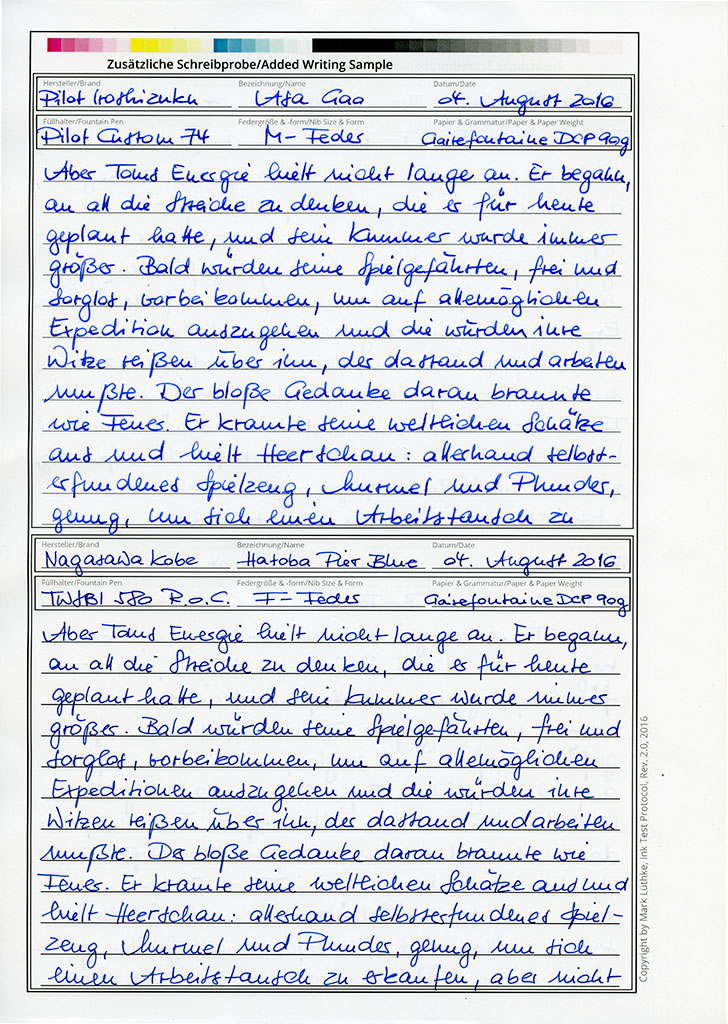 Zusätzliche Schreibprobe/Added Writing Sample
Hersteller/Brand Bezeichnung/Name Datum/Date
Pilot Iroshizuku Asa Gao 04. August 2016
Füllhalter/Fountain Pen Federgröße & -form/Nib Size & Form Papier & Grammatur/Paper & Paper Weight
Pilot Custom 74 M-Feder Clairefontaine DCP 90g
Aber Toms Energie hielt nicht lange an. Er begann,
an all die Streiche zu denken, die er für heute
geplant hatte, und sein Kummer wurde immer
größer. Bald würden seine Spielgefährten, frei und
sorglos, vorbeikommen, um auf allemöglichen
Expedition auszugehen und die würden ihre
Witze reißen über ihn, der dastand und arbeiten
mußte. Der bloße Gedanke daran brannte
wie Feuer. Er kramte seine weltlichen Schätze
aus und hielt Heerschau: allerhand selbst-
erfundenes Spielzeug, Murmel und Plunder,
genug, um sich einen Arbeitstausch zu
Hersteller/Brand Bezeichnung/Name Datum/Date
Nagasawa Kobe Hatoba Pier Blue 04. August 2016
Füllhalter/Fountain Pen Federgröße & -form/Nib Size & Form Papier & Grammatur/Paper & Paper Weight
TWSBI 580 R.o.C. F-Feder Clairefontaine DCP 90g
Aber Toms Energie hielt nicht lange an. Er begann,
an all die Streiche zu denken, die er für heute
geplant hatte, und sein Kummer wurde immer
größer. Bald würden seine Spielgefährten, frei und
sorglos, vorbeikommen, um auf allemöglichen
Expeditionen auszugehen und die würden ihre
Witzen reißen über ihn, der dastand und arbeiten
mußte. Der bloße Gedanke daran brannte wie
Feuer. Er kramte seine weltlichen Schätze aus und
hielt Heerschau: allerhand selbsterfundenes Spiel-
zeug, Murmel und Plunder, genug, um sich
einen Arbeitstausch zu erkaufen, aber nicht
Copyright by Mark Lüthke, Ink Test Protocol, Rev. 2.0, 2016